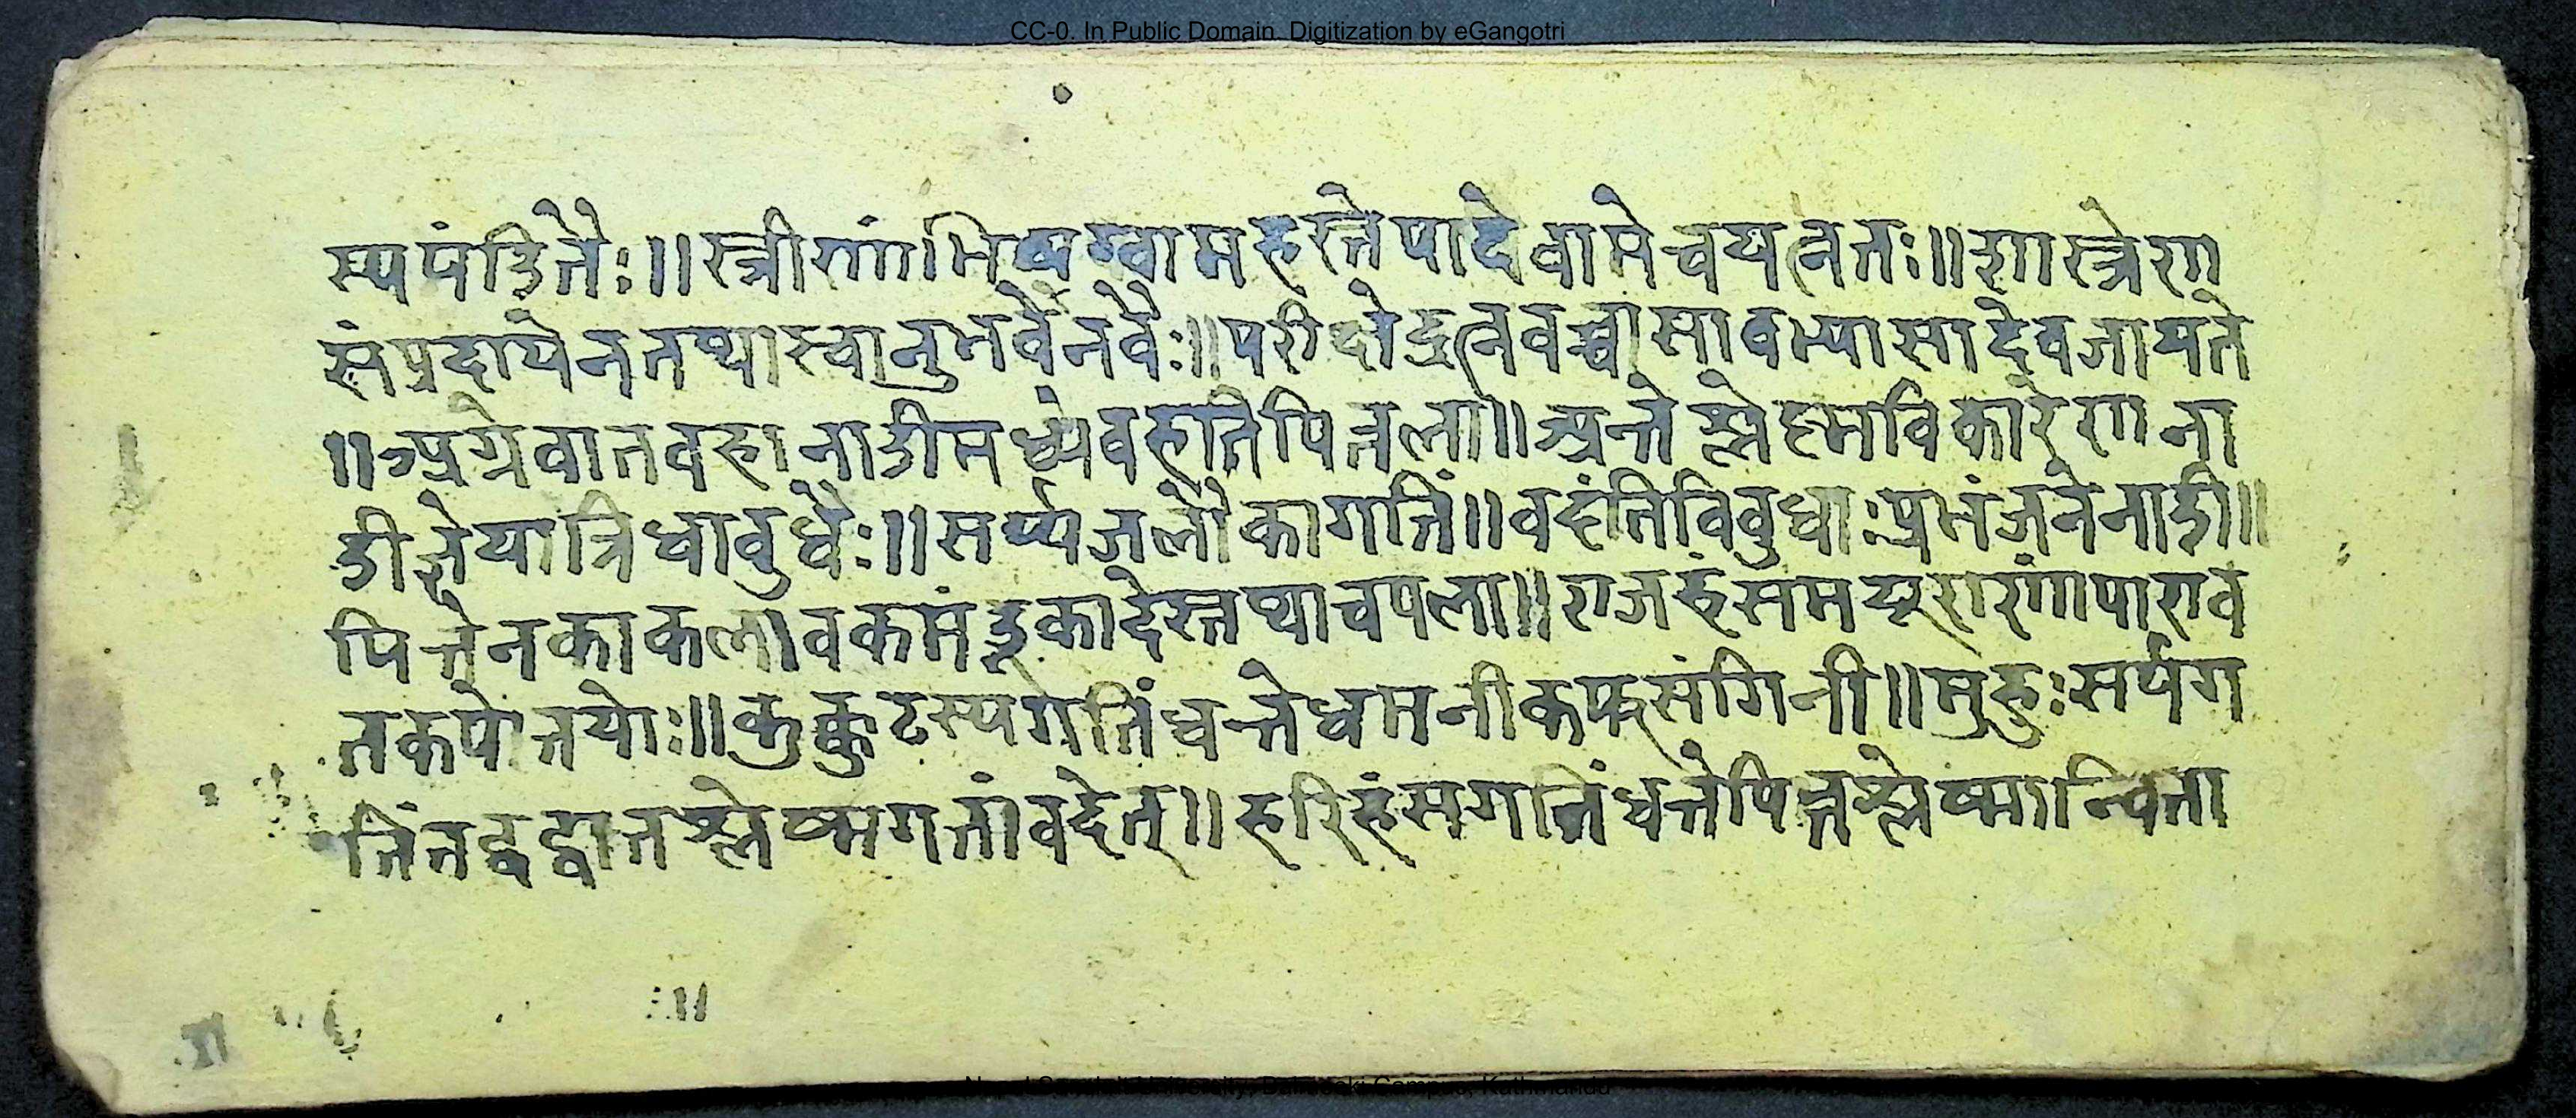 CC-0. In Public Domain. Digitization by eGangotri
स्यपंडितैः॥स्त्रीणांभिषग्वामहस्तेपादेवामेचयत्नतः॥शास्त्रेण
संप्रदायेनतथास्वानुभवेनवैः॥परीक्षेद्रत्नवच्चासावभ्यासादेवजायते
॥अग्रेवातवहानाडीमध्येवहतिपित्तला॥अन्तेश्लेष्मविकारेणना
डीज्ञेयात्रिधावुधैः॥सर्प्पजलौकागतिं॥वदंतिविवुधाःप्रभंजनेनाडी॥
पित्तेनकाकलावकमंडूकादेस्तथाचपला॥राजहंसमयूराणांपाराव
तकपोतयोः॥कुक्कुटस्यगतिंधत्तेधमनीकफसंगिनी॥मुहुःसर्पग
तिंतद्वद्वातश्लेष्मगतांवदेत्॥हरिहंसगतिंधत्तेपित्तश्लेष्मान्विता